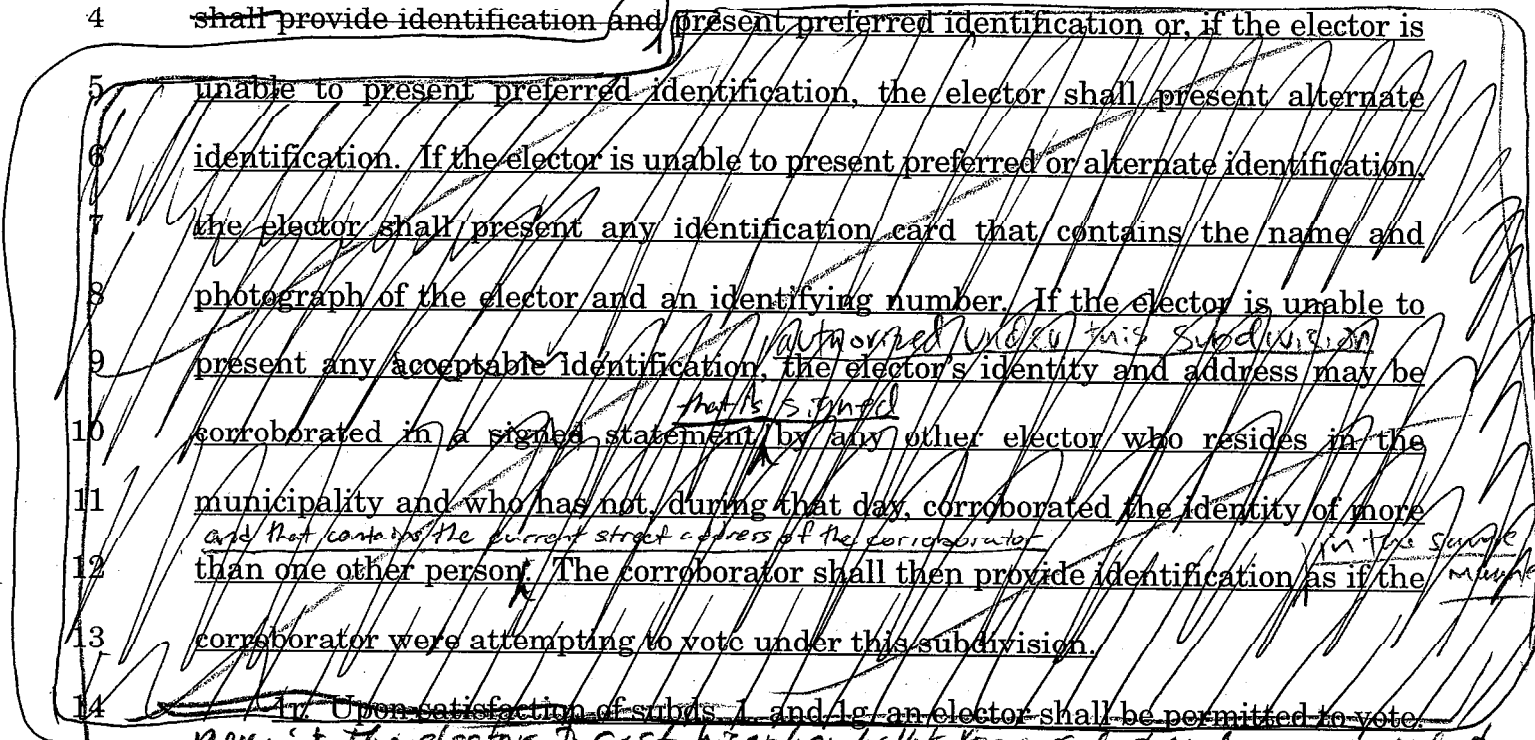 4 shall provide identification and present preferred identification or, if the elector is
5 unable to present preferred identification, the elector shall present alternate
6 identification. If the elector is unable to present preferred or alternate identification,
7 the elector shall present any identification card that contains the name and
8 photograph of the elector and an identifying number. If the elector is unable to
authorized under this subdivision
9 present any acceptable identification, the elector's identity and address may be
that is signed
10 corroborated in a signed statement by any other elector who resides in the
11 municipality and who has not, during that day, corroborated the identity of more
and that contains the current street address of the corroborator
in the same
12 than one other person. The corroborator shall then provide identification as if the
13 corroborator were attempting to vote under this subdivision.
14 1r. Upon satisfaction of subds. 1. and 1g. an elector shall be permitted to vote.